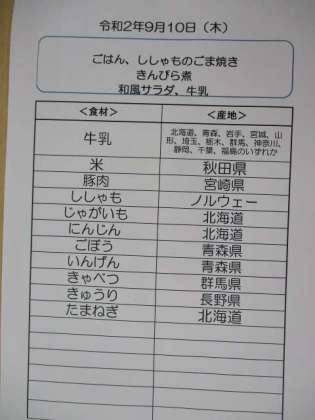 令和2年9月10日（木）
ごはん、ししゃものごま焼き
きんぴら煮
和風サラダ、牛乳
＜食材＞ ＜産地＞
牛乳 北海道、青森、岩手、宮城、山
形、埼玉、栃木、群馬、神奈川、
静岡、千葉、福島のいずれか
米 秋田県
豚肉 宮崎県
ししゃも ノルウェー
じゃがいも 北海道
にんじん 北海道
ごぼう 青森県
いんげん 青森県
きゃべつ 群馬県
きゅうり 長野県
たまねぎ 北海道